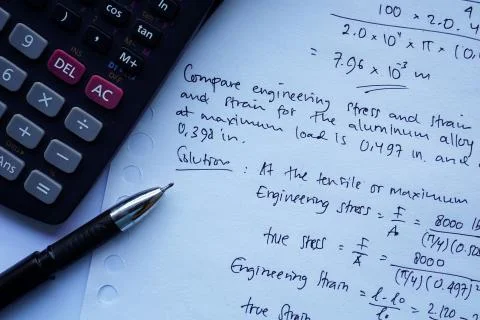 ln
cos
tan
(
)
,
M+
9
INS
DEL
OFF
AC
6
×
÷
+
−
Ans
=
100 × 2.0. 4
2.0 × 10⁴ × π × (0,
= 7.96 × 10⁻³ m
Compare engineering stress and strain
and strain for the aluminum alloy
at maximum load is 0,497 in. and
0,398 in.
Solution : At the tensile or maximum
Engineering stress = F/A₀ = 8000 lb / (π/4)(0.505
true stress = F/A = 8000 / (π/4)(0.497)²
Engineering strain = l-l₀/l₀ = 2.120 - 2
true strain